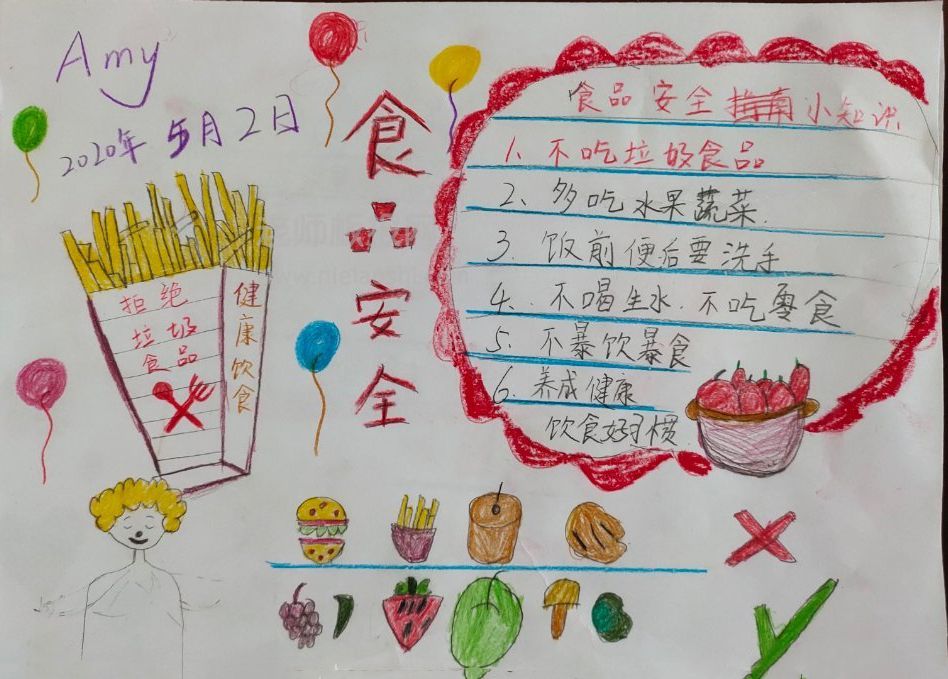 Amy
2020年5月2日
食品安全
拒绝
垃圾
食品
健康饮食
食品安全指南小知识
1、不吃垃圾食品
2、多吃水果蔬菜.
3、饭前便后要洗手
4、不喝生水.不吃零食
5、不暴饮暴食
6、养成健康
饮食好习惯.